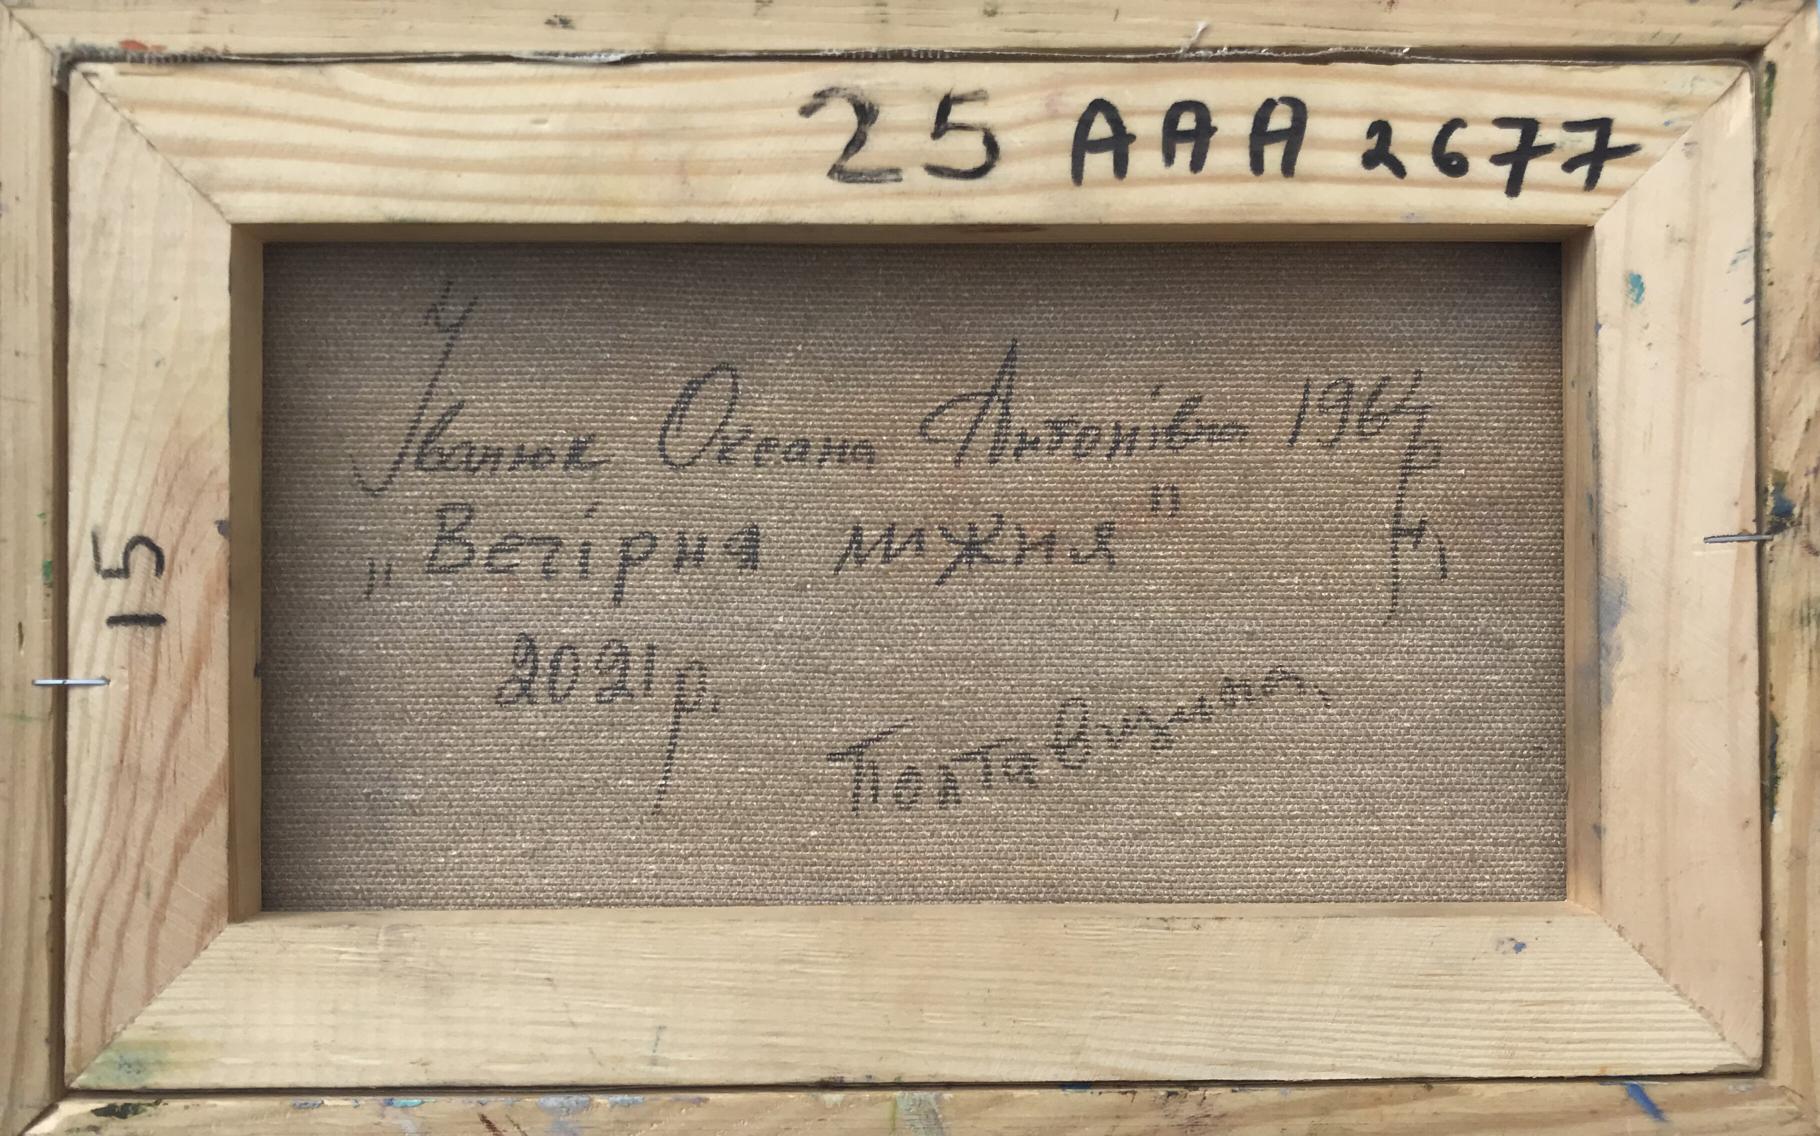 25 AAA 2677
15
Іванюк Оксана Антонівна 1964 р.н,
„Вечірня ніжня"
2021 р.
Полтавщина,